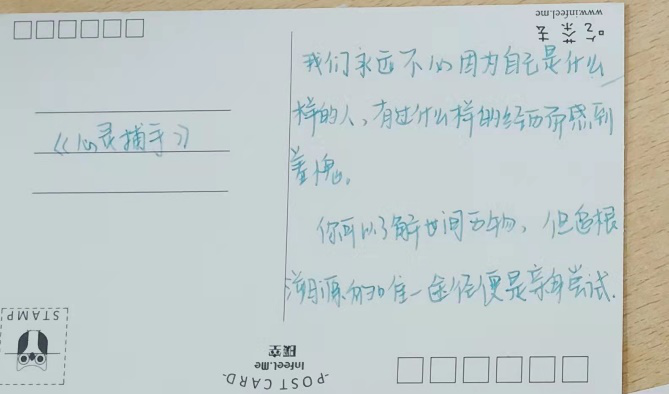 www.infeel.me
吃茶去
《心灵捕手》
我们永远不必因为自己是什么
样的人、有过什么样的经历而感到
羞愧。
你可以了解世间万物，但追根
溯源的唯一途径便是亲身尝试.
STAMP
暖空
Infeel.Me
-POSTCARD-